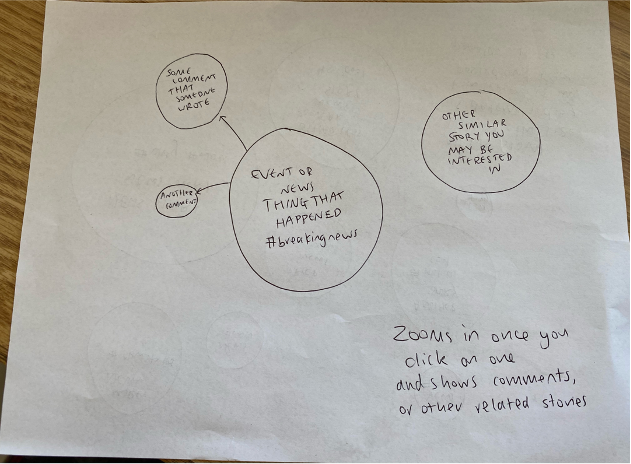 SOME
COMMENT
THAT
SOMEONE
WROTE
ANOTHER
COMMENT
EVENT OR
NEWS
THING THAT
HAPPENED
#breakingnews
OTHER
SIMILAR
STORY YOU
MAY BE
INTERESTED
IN
Zooms in once you
click on one
and shows comments,
or other related stories